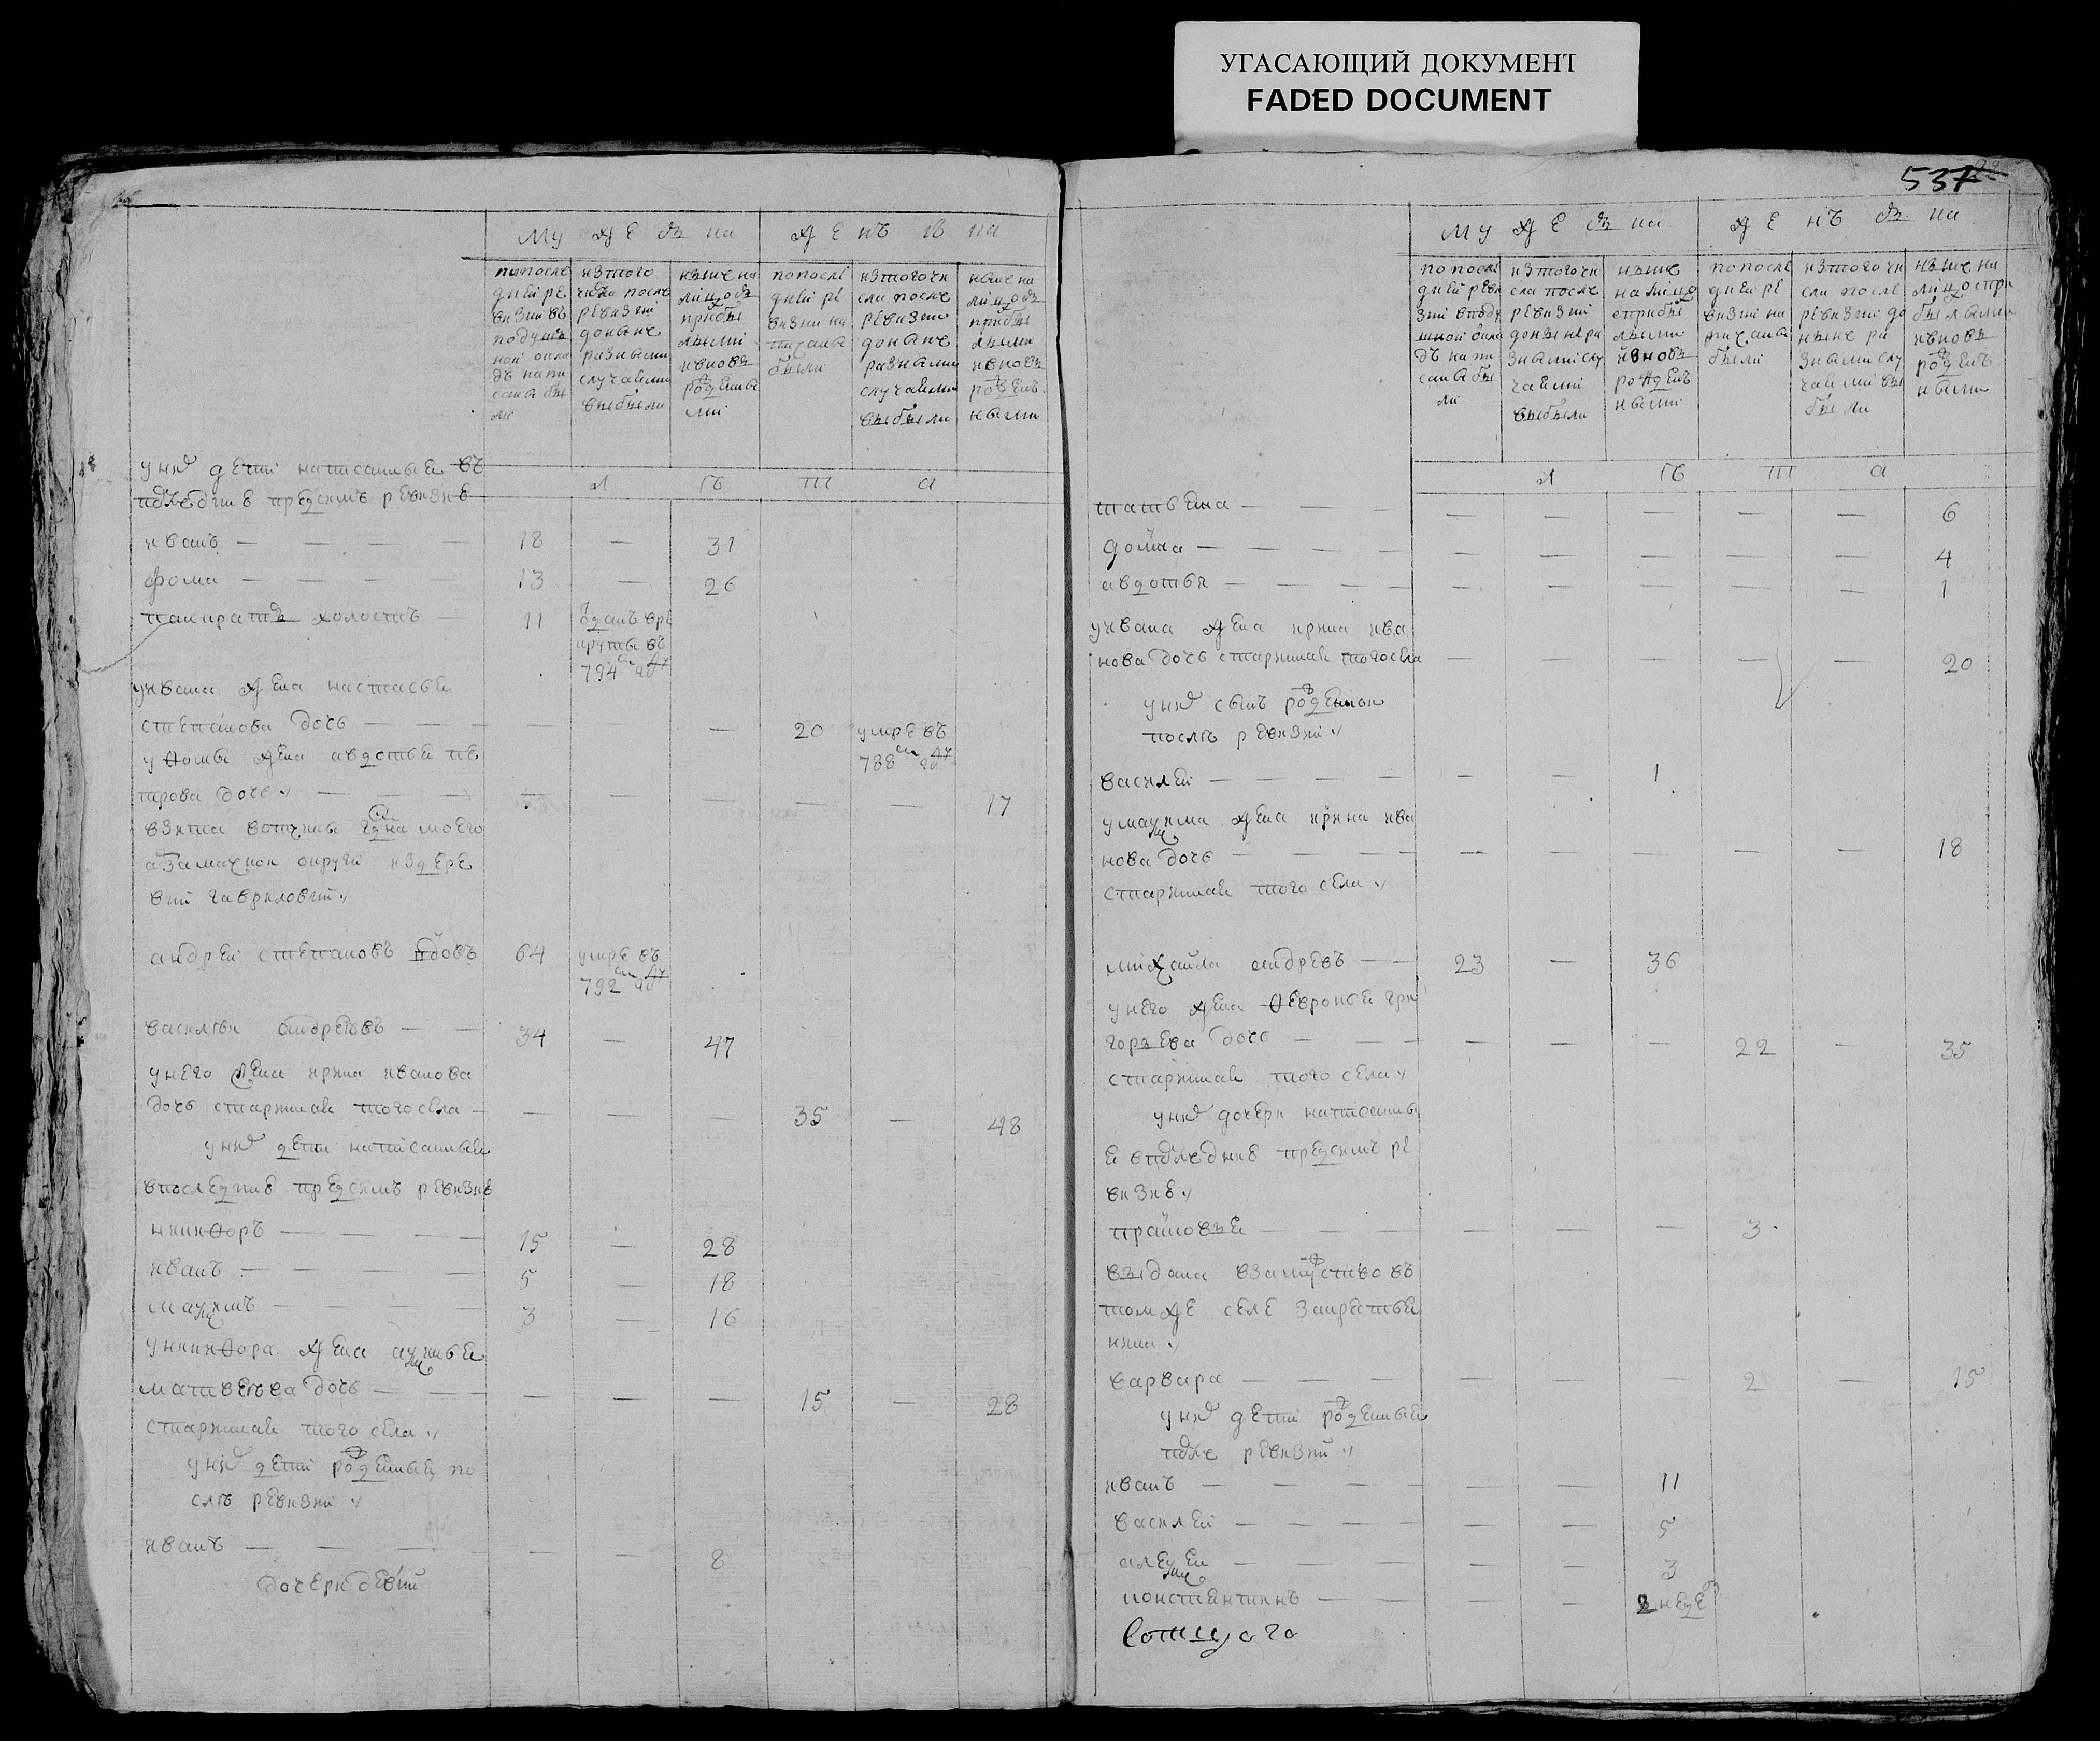 УГАСАЮЩИЙ ДОКУМЕНТ
FADED DOCUMENT
537
му же ска
же нъ ска
по после
дней ре
визии въ
подуш
ной окла
дъ напи
саны бы
ли
изтого
числа после
ревизии
доныне
разными
случаями
выбыли
ныне на
лицо съ
прибы
лыми
и вновь
рожденны
ми
по после
дней ре
визии на
писаны
были
изтого чи
сла после
ревизии
доныне
разными
случаями
выбыли
ныне на
лицо съ
прибы
лыми
и вновь
рожден
ными
л ѣ т а
у них дети написанные въ
последней пред сим ревизие
иванъ — 18 — 31
фома — 13 — 26
панкратъ холостъ — 11 отданъ в ре
круты въ
794м году
у ивана жена настасья
степанова дочь — 20 умре въ
788м году
у ѳомы жена авдотья пе
трова дочь — 17
взята вотчины г͠дна моего
арзамаской округи из дере
вни гавриловки
андрей степановъ вдовъ 64 умре въ
792м году
василей андреевъ — 34 — 47
у него жена ирина иванова
дочь старинная того села — 35 — 48
у них дети написанные
в последние пред симъ ревизие
никиѳоръ — 15 — 28
иванъ — 5 — 18
максимъ — 3 — 16
у никиѳора жена аксинья
матвеева дочь — 15 — 28
старинная того села
у них дети рожденные по
слѣ ревизии
иванъ — 8
дочери девки
му же ска
же нъ ска
по после
дней реви
зии в поду
шной окла
дъ напи
саны бы
ли
изтого чи
сла после
ревизии
доныне ра
зными слу
чаями
выбыли
ныне
на лицо
с прибы
лыми
и вновь
рожден
ными
по после
дней ре
визии на
писаны
были
изтого чи
сла после
ревизии до
ныне ра
зными слу
чаями вы
были
ныне на
лицо с при
былыми
и вновь
рожден
ными
л ѣ т а
татьяна — 6
домна — 4
авдотья — 1
у ивана жена ирина ива
нова дочь старинная того села — 20
у них сынъ рожденной
послѣ ревизии
василей — 1
у максима жена ирина ива
нова дочь — 18
старинная того села
михайла андревъ — 23 — 36
у него жена ѳевронья гри
горьева дочь — 22 — 35
старинная того села
у них дочери написанны
е в последние пред симъ ре
визие
прасковья — 3
выдана в замужство въ
том же селе за крестья
нина
варвара — 2 — 15
у них дети рожденные
после ревизии
иванъ — 11
василей — 5
алексей — 3
констентинъ — 2 недел